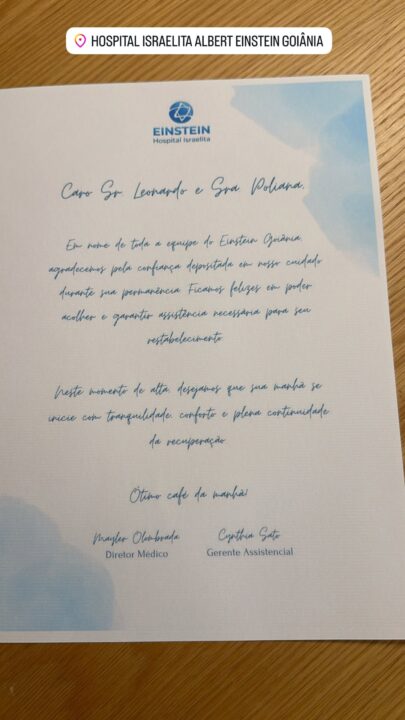 HOSPITAL ISRAELITA ALBERT EINSTEIN GOIÂNIA
EINSTEIN
Hospital Israelita
Caro Sr. Leonardo e Sra Poliana,
Em nome de toda a equipe do Einstein Goiânia,
agradecemos pela confiança depositada em nosso cuidado
durante sua permanência. Ficamos felizes em poder
acolher e garantir assistência necessária para seu
restabelecimento.
Neste momento de alta, desejamos que sua manhã se
inicie com tranquilidade, conforto e plena continuidade
da recuperação.
Ótimo café da manhã!
Mayler Olombrada
Cynthia Sato
Diretor Médico
Gerente Assistencial